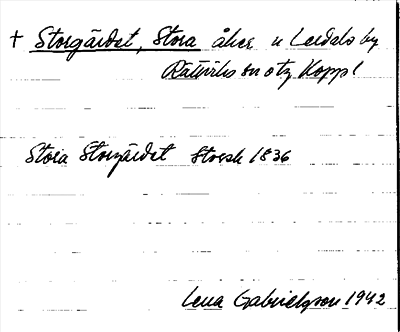 † Storgärdet, Stora åker u Lerdals by
Rättviks sn o tg Koppl
Stora Storgärdet Storsk 1836
Lena Gabrielsson 1942